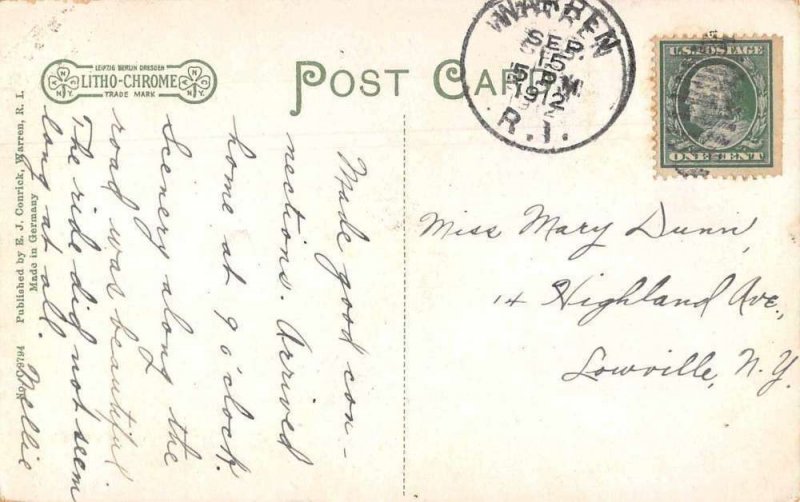 LEIPZIG BERLIN DRESDEN
LITHO-CHROME
TRADE MARK
POST CARD
WARREN
SEP
15
5 PM
1912
R.I.
U.S. POSTAGE
ONE CENT
Made good con-
nections. Arrived
home at 9 o'clock.
Scenery along the
road was beautiful.
The ride did not seem
long at all.
Nellie
Miss Mary Dunn,
14 Highland Ave.,
Lowville, N.Y.
Published by E. J. Conrick, Warren, R. I.
Made in Germany